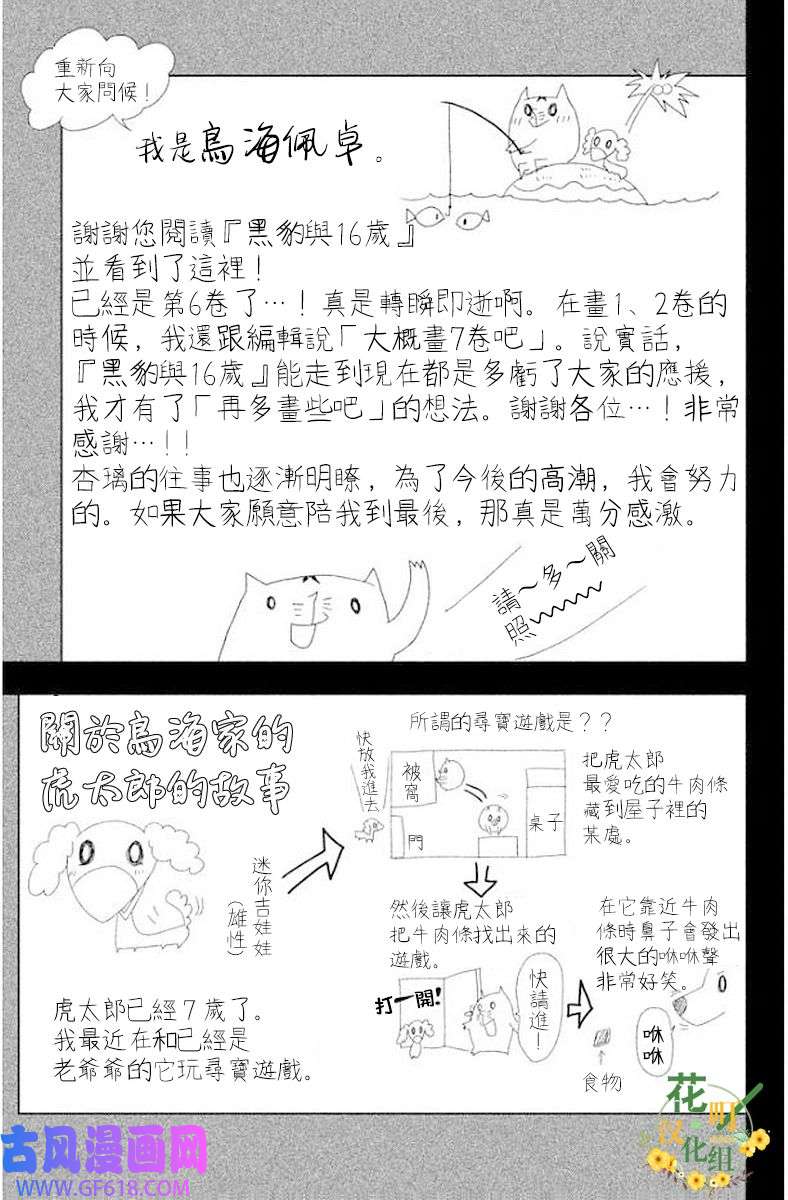 重新向
大家問候！
我是鳥海佩卓。
謝謝您閱讀『黑豹與16歲』
並看到了這裡！
已經是第6卷了…！真是轉瞬即逝啊。在畫1、2卷的
時候，我還跟編輯說「大概畫7卷吧」。說實話，
『黑豹與16歲』能走到現在都是多虧了大家的應援，
我才有了「再多畫些吧」的想法。謝謝各位…！非常
感謝…！！
杏璃的往事也逐漸明瞭，為了今後的高潮，我會努力
的。如果大家願意陪我到最後，那真是萬分感激。
請～多～關
照～～～～
關於鳥海家的
虎太郎的故事
迷你吉娃娃
(雄性)
虎太郎已經7歲了。
我最近在和已經是
老爺爺的它玩尋寶遊戲。
所謂的尋寶遊戲是？？
快放我進去
被窩
門
桌子
把虎太郎
最愛吃的牛肉條
藏到屋子裡的
某處。
然後讓虎太郎
把牛肉條找出來的
遊戲。
打一開！
快請進！
在它靠近牛肉
條時鼻子會發出
很大的咻咻聲
非常好笑。
咻咻
食物
花町
汉化组
古风漫画网
WWW.GF618.COM